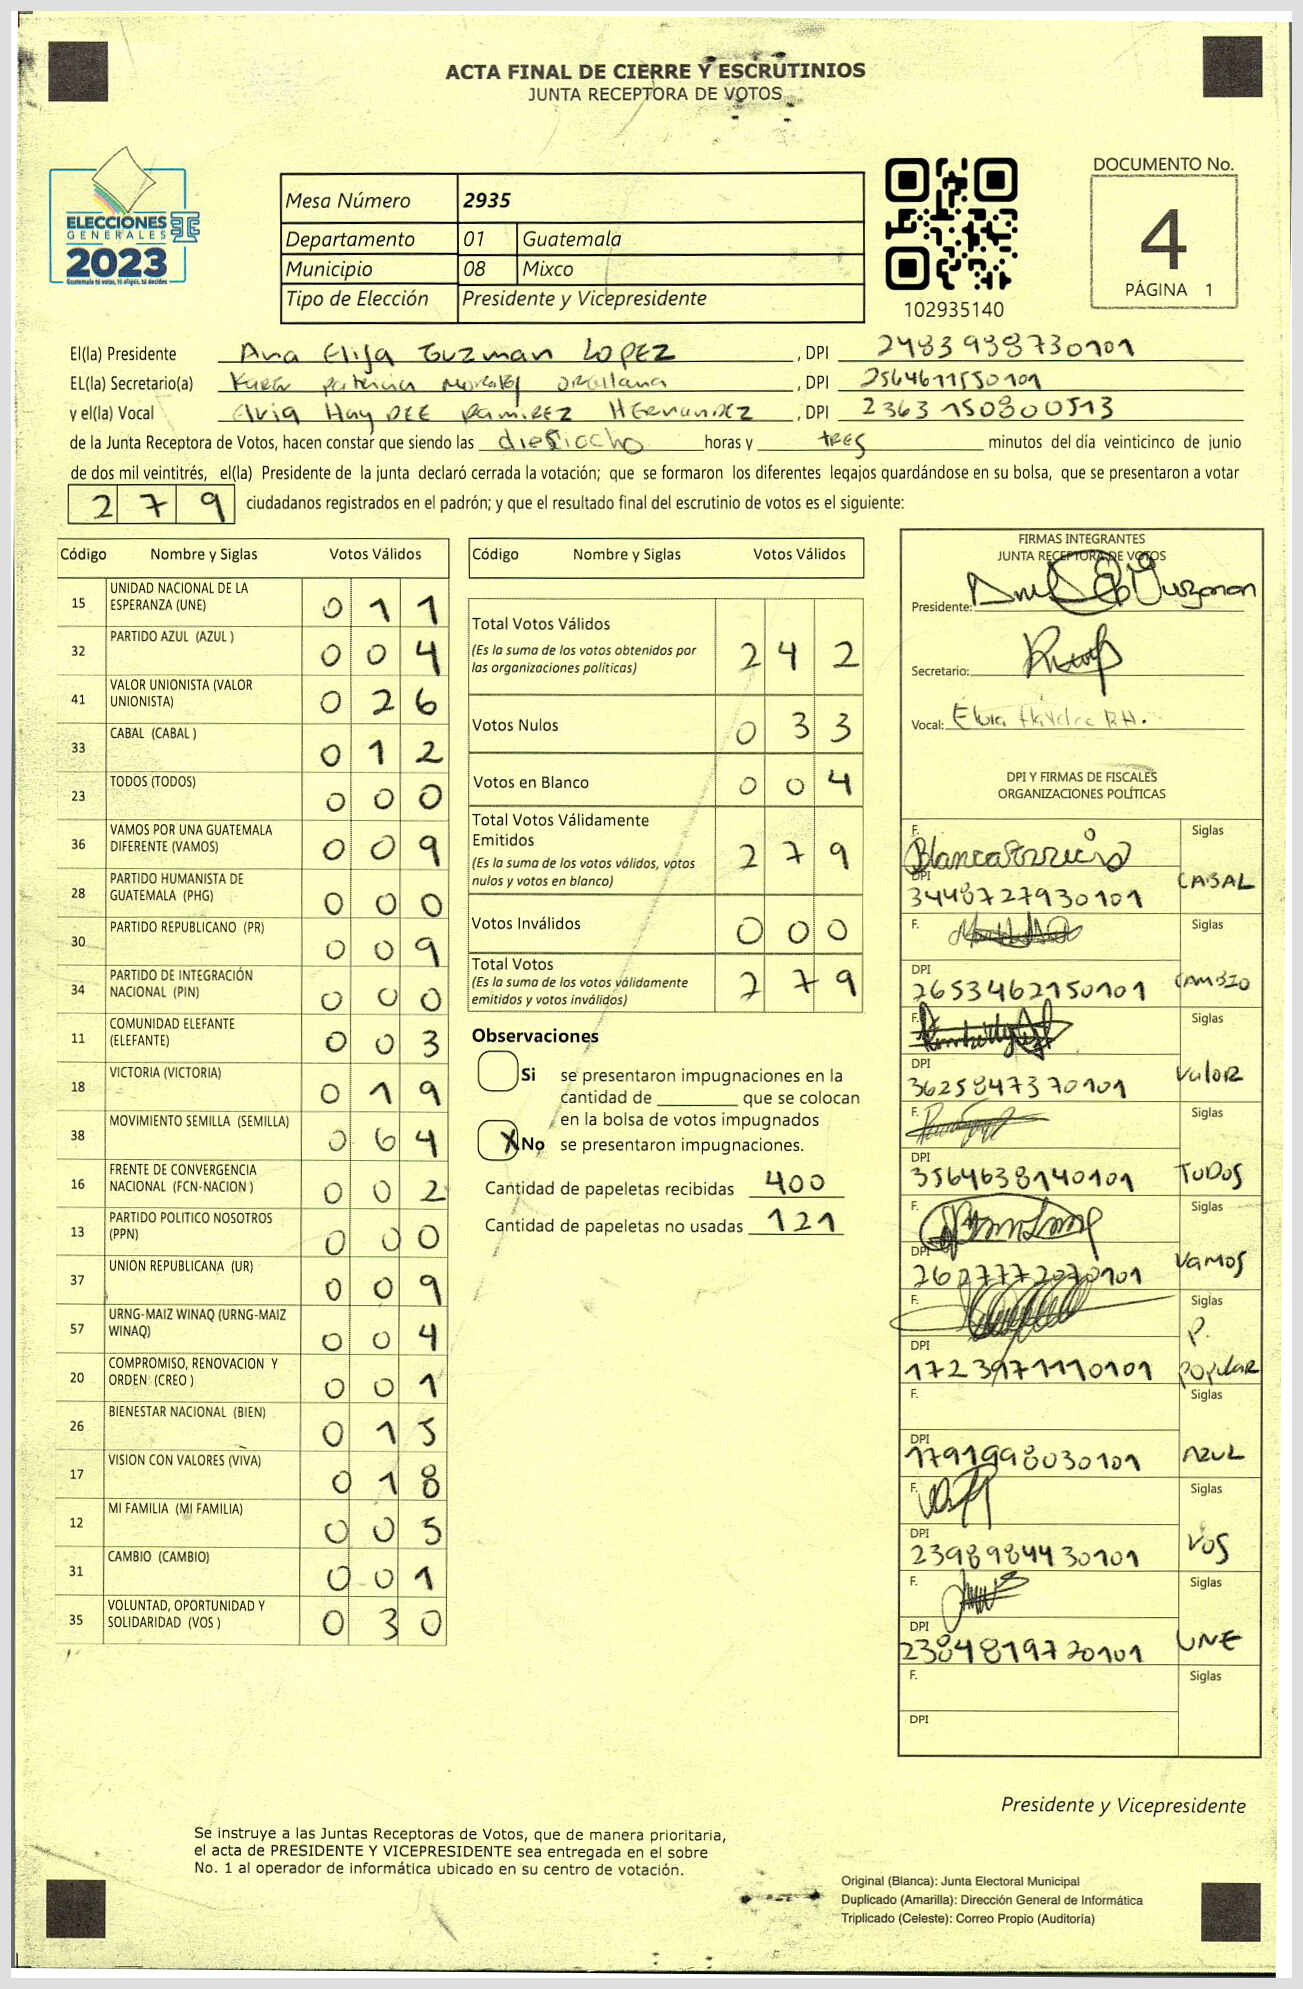 ACTA FINAL DE CIERRE Y ESCRUTINIOS
JUNTA RECEPTORA DE VOTOS
ELECCIONES
GENERALES
2023
Guatemala tú votas, tú eliges, tú decides
Mesa Número 2935
Departamento 01 Guatemala
Municipio 08 Mixco
Tipo de Elección Presidente y Vicepresidente
102935140
DOCUMENTO No.
4
PÁGINA 1
El(la) Presidente Ana Elisa Guzman LOPEZ , DPI 2483938730101
EL(la) Secretario(a) Karen Patricia Morales Orellana , DPI 2564611550101
y el(la) Vocal Elvia HayDEE RamiREZ HErnanDEZ , DPI 2363150800513
de la Junta Receptora de Votos, hacen constar que siendo las diesiocho horas y tRES minutos del día veinticinco de junio
de dos mil veintitrés, el(la) Presidente de la junta declaró cerrada la votación; que se formaron los diferentes legajos guardándose en su bolsa, que se presentaron a votar
279 ciudadanos registrados en el padrón; y que el resultado final del escrutinio de votos es el siguiente:
Código Nombre y Siglas Votos Válidos
15 UNIDAD NACIONAL DE LA ESPERANZA (UNE) 011
32 PARTIDO AZUL (AZUL ) 004
41 VALOR UNIONISTA (VALOR UNIONISTA) 026
33 CABAL (CABAL ) 012
23 TODOS (TODOS) 000
36 VAMOS POR UNA GUATEMALA DIFERENTE (VAMOS) 009
28 PARTIDO HUMANISTA DE GUATEMALA (PHG) 000
30 PARTIDO REPUBLICANO (PR) 009
34 PARTIDO DE INTEGRACIÓN NACIONAL (PIN) 000
11 COMUNIDAD ELEFANTE (ELEFANTE) 003
18 VICTORIA (VICTORIA) 019
38 MOVIMIENTO SEMILLA (SEMILLA) 064
16 FRENTE DE CONVERGENCIA NACIONAL (FCN-NACION ) 002
13 PARTIDO POLITICO NOSOTROS (PPN) 000
37 UNION REPUBLICANA (UR) 009
57 URNG-MAIZ WINAQ (URNG-MAIZ WINAQ) 004
20 COMPROMISO, RENOVACION Y ORDEN (CREO ) 001
26 BIENESTAR NACIONAL (BIEN) 015
17 VISION CON VALORES (VIVA) 018
12 MI FAMILIA (MI FAMILIA) 005
31 CAMBIO (CAMBIO) 001
35 VOLUNTAD, OPORTUNIDAD Y SOLIDARIDAD (VOS ) 030
Código Nombre y Siglas Votos Válidos
Total Votos Válidos 242
(Es la suma de los votos obtenidos por
las organizaciones políticas)
Votos Nulos 033
Votos en Blanco 004
Total Votos Válidamente
Emitidos 279
(Es la suma de los votos válidos, votos
nulos y votos en blanco)
Votos Inválidos 000
Total Votos 279
(Es la suma de los votos válidamente
emitidos y votos inválidos)
Observaciones
Si se presentaron impugnaciones en la
cantidad de ________ que se colocan
en la bolsa de votos impugnados
X No se presentaron impugnaciones.
Cantidad de papeletas recibidas 400
Cantidad de papeletas no usadas 121
FIRMAS INTEGRANTES
JUNTA RECEPTORA DE VOTOS
Presidente:
Secretario:
Vocal: Elvia Haydee RH.
DPI Y FIRMAS DE FISCALES
ORGANIZACIONES POLÍTICAS
F. Siglas
DPI 3448727930101 CABAL
F. Siglas
DPI 2653462150101 CAMBIO
F. Siglas
DPI 3625847370101 ValoR
F. Siglas
DPI 3564638140101 TODOS
F. Siglas
DPI 2627772070101 VAMOS
F. Siglas
DPI 1723971110101 P. POPulAR
F. Siglas
DPI 1791998030101 AZUL
F. Siglas
DPI 2398984430101 VOS
F. Siglas
DPI 2384819720101 UNE
F. Siglas
DPI
Presidente y Vicepresidente
Se instruye a las Juntas Receptoras de Votos, que de manera prioritaria,
el acta de PRESIDENTE Y VICEPRESIDENTE sea entregada en el sobre
No. 1 al operador de informática ubicado en su centro de votación.
Original (Blanca): Junta Electoral Municipal
Duplicado (Amarilla): Dirección General de Informática
Triplicado (Celeste): Correo Propio (Auditoría)